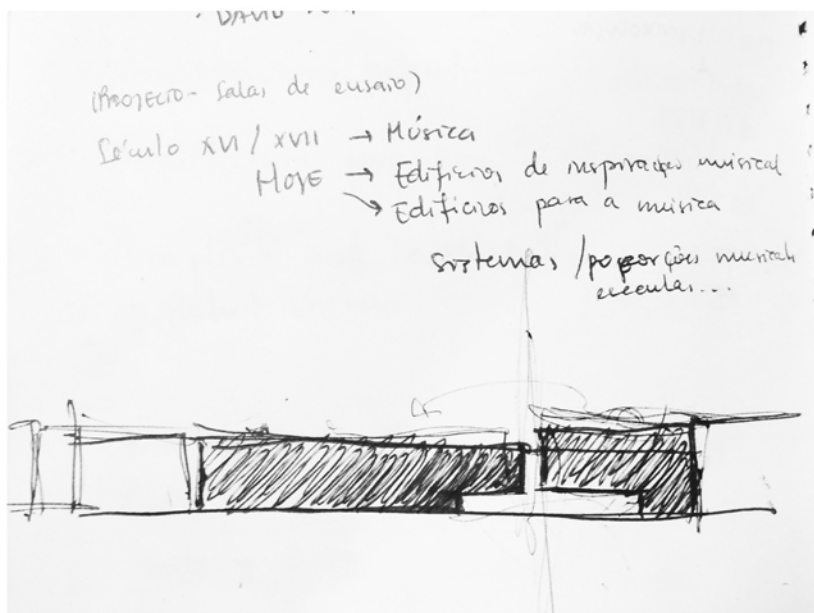 · DAVID
(PROJECTO - Salas de ensaio)
Século XVI / XVII → Música
HOJE → Edifícios de inspiração musical
→ Edifícios para a música
sistemas / poporções musicais
...